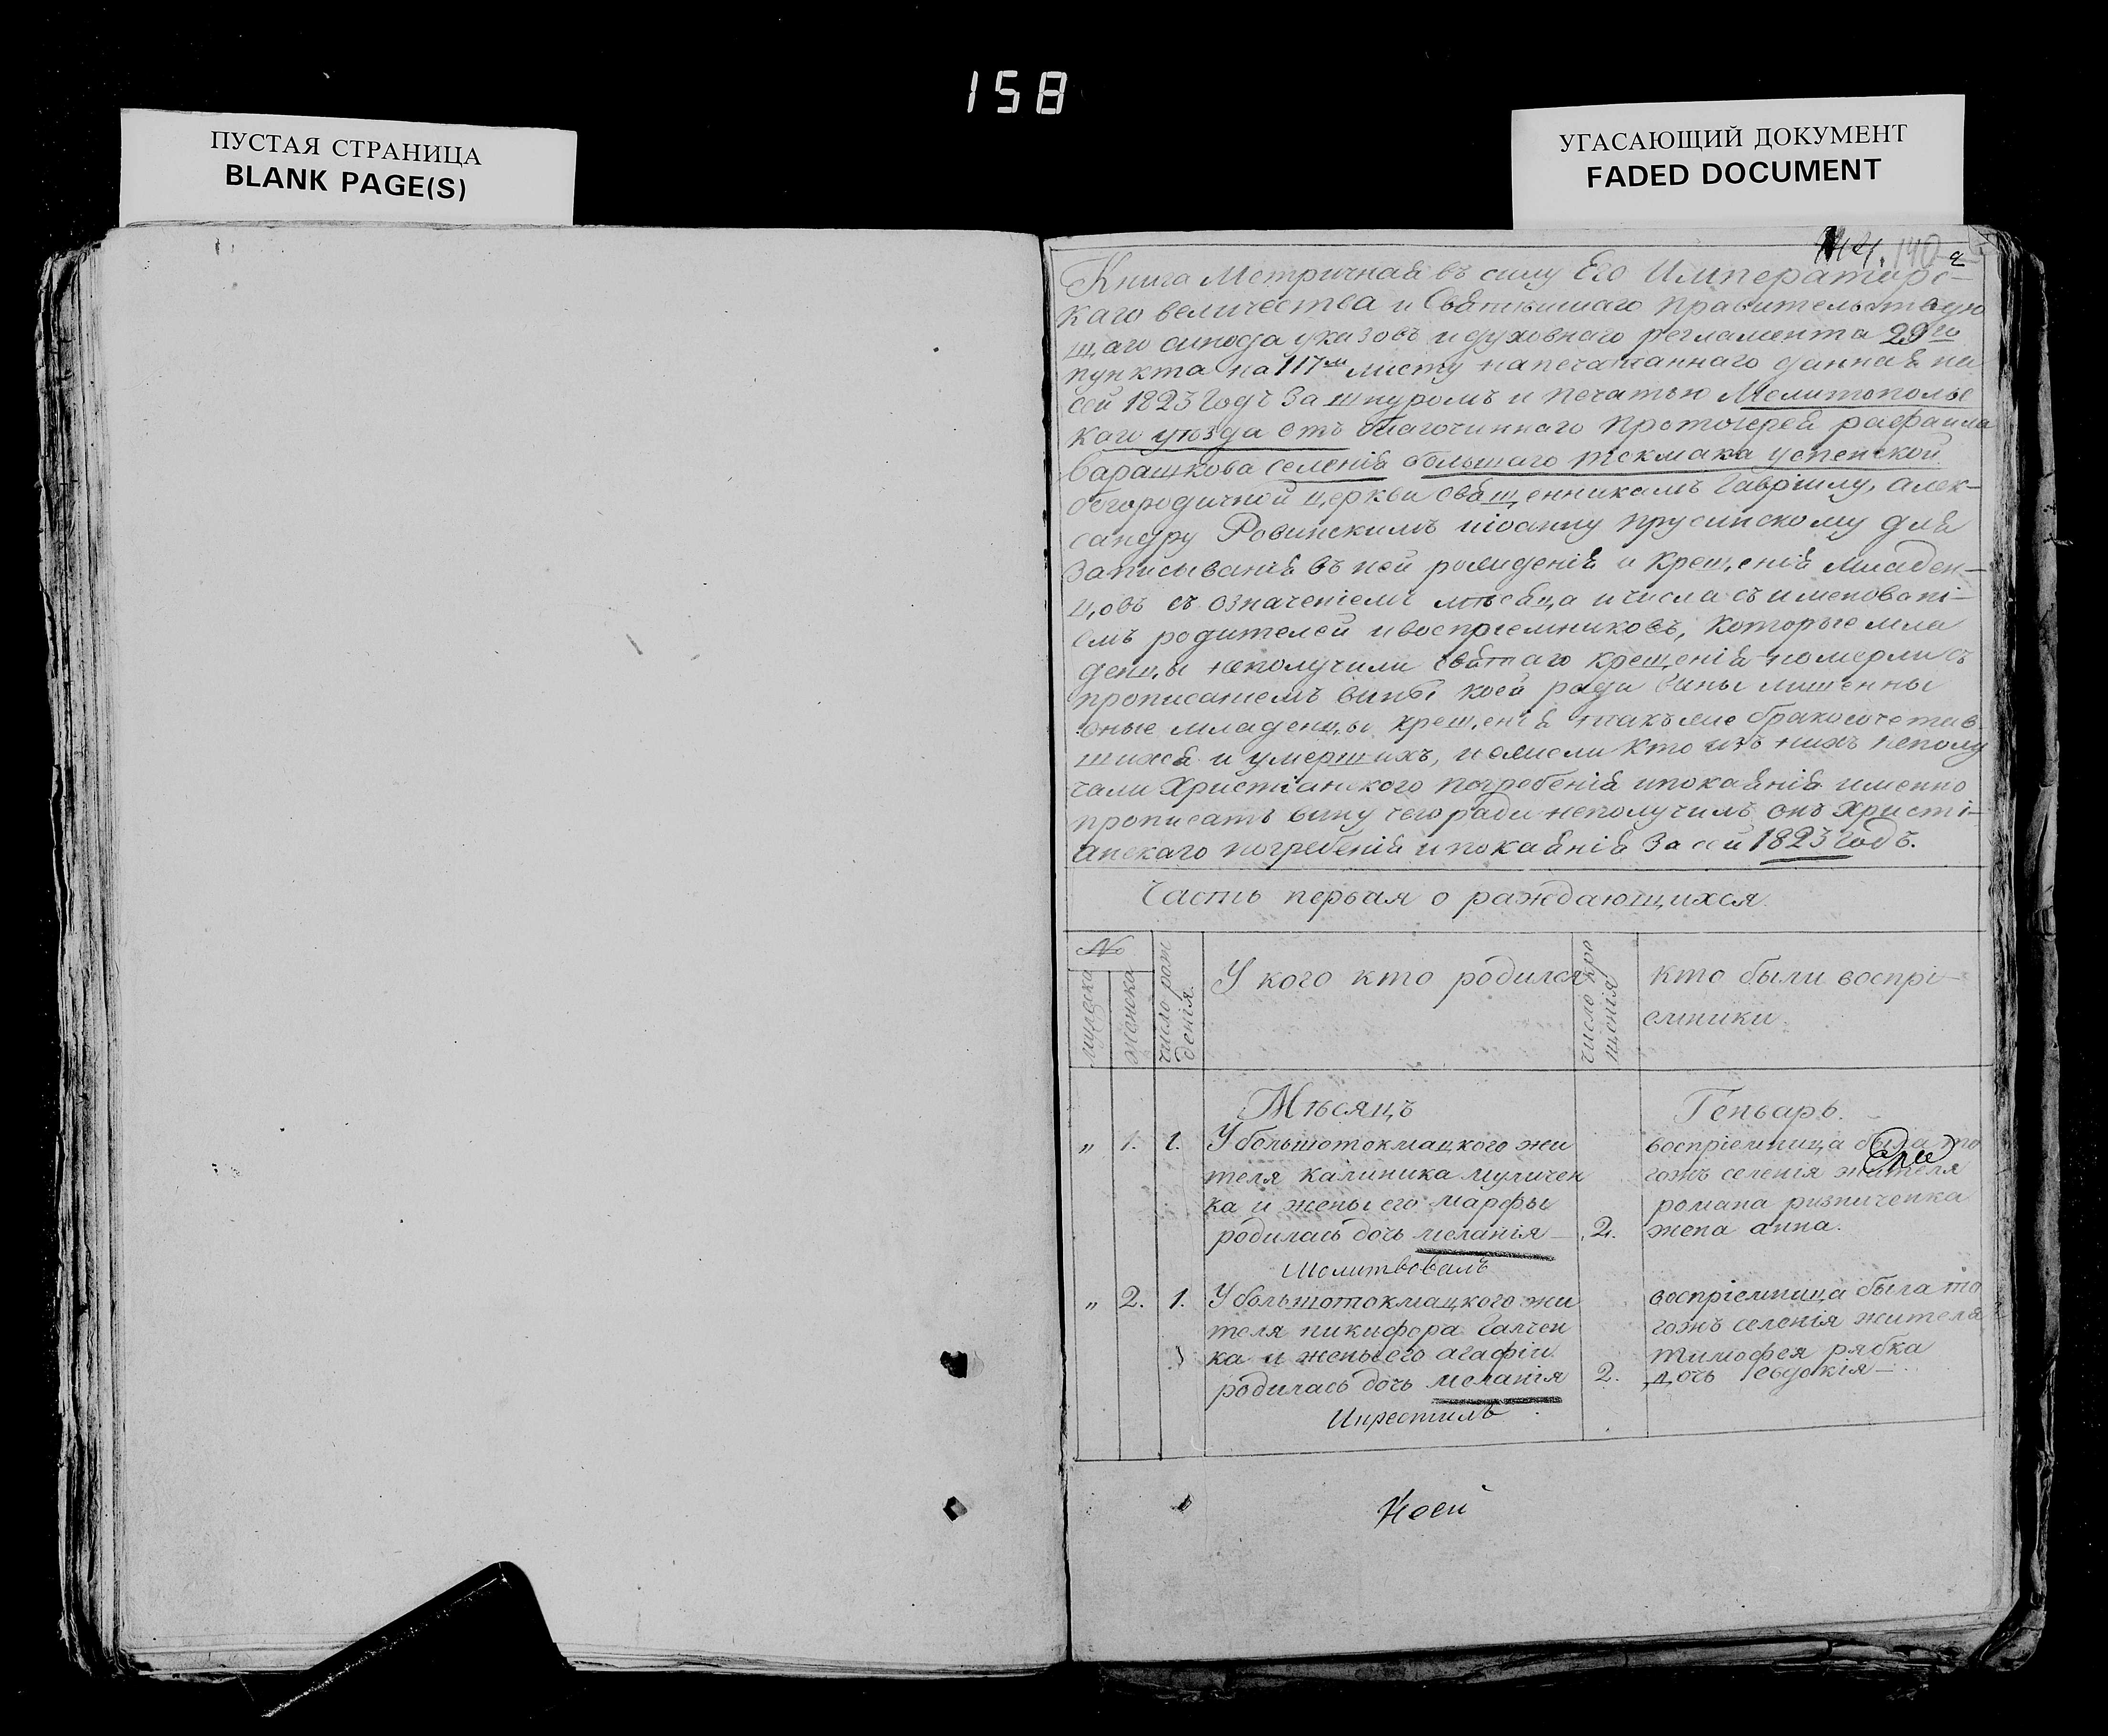 158
ПУСТАЯ СТРАНИЦА
BLANK PAGE(S)
УГАСАЮЩИЙ ДОКУМЕНТ
FADED DOCUMENT
140
Книга Метричная въ силу Его Императорс-
каго величества и Святѣйшаго правительствую
щаго синода указовъ и духовнаго регламента 29го
пункта на 117мъ листу напечатаннаго данная на
сей 1823 Годъ За шнуромъ и печатью Мелитопольс
каго уѣзда отъ благочиннаго протоіерея рафаила
Барашкова селенія большаго токмака успенской
богородичной церкви священникамъ Гавріилу, алек-
сандру Ровинскимъ иіоанну прусинскому для
записыванія въ ней рожиденія и Крещенія младен-
цовъ съ означеніемъ мѣсяца и числа съ именовані-
емъ родителей ивоспріемниковъ, которые мла
денцы неполучили святаго крещенія померли съ
прописаніемъ вины коей ради вины лишенны
оные младенцы крещенія такъ же бракосочетав
шихся и умершихъ, и ежели кто изъ нихъ неполу
чали Христіанского погребенія ипокаянія именно
прописать вину чего ради неполучилъ онъ Христі-
анскаго погребенія ипокаянія За сей 1823 Годъ.
Часть первая о раждающихся.
№
мужеска
женска
число рож
денія.
У кого кто родился
число кре
щенія
кто были воспрі-
емники.
Мѣсяцъ
Генварь.
„ 1. 1. У большотокмацкого жи
теля калиника муличен
ка и жены его марфы
родилась дочь меланія
2.
воспріемница была то
гожъ селенія жителя
романа ризниченка
жена анна.
Молитвовалъ
„ 2. 1. У большотокмацкого жи
теля никифора Галчен
ка и жены его агафіи
родилась дочь меланія
2.
воспріемница была то
гожъ селенія жителя
тимофея рябка
дочь Евдокія
Икрестилъ